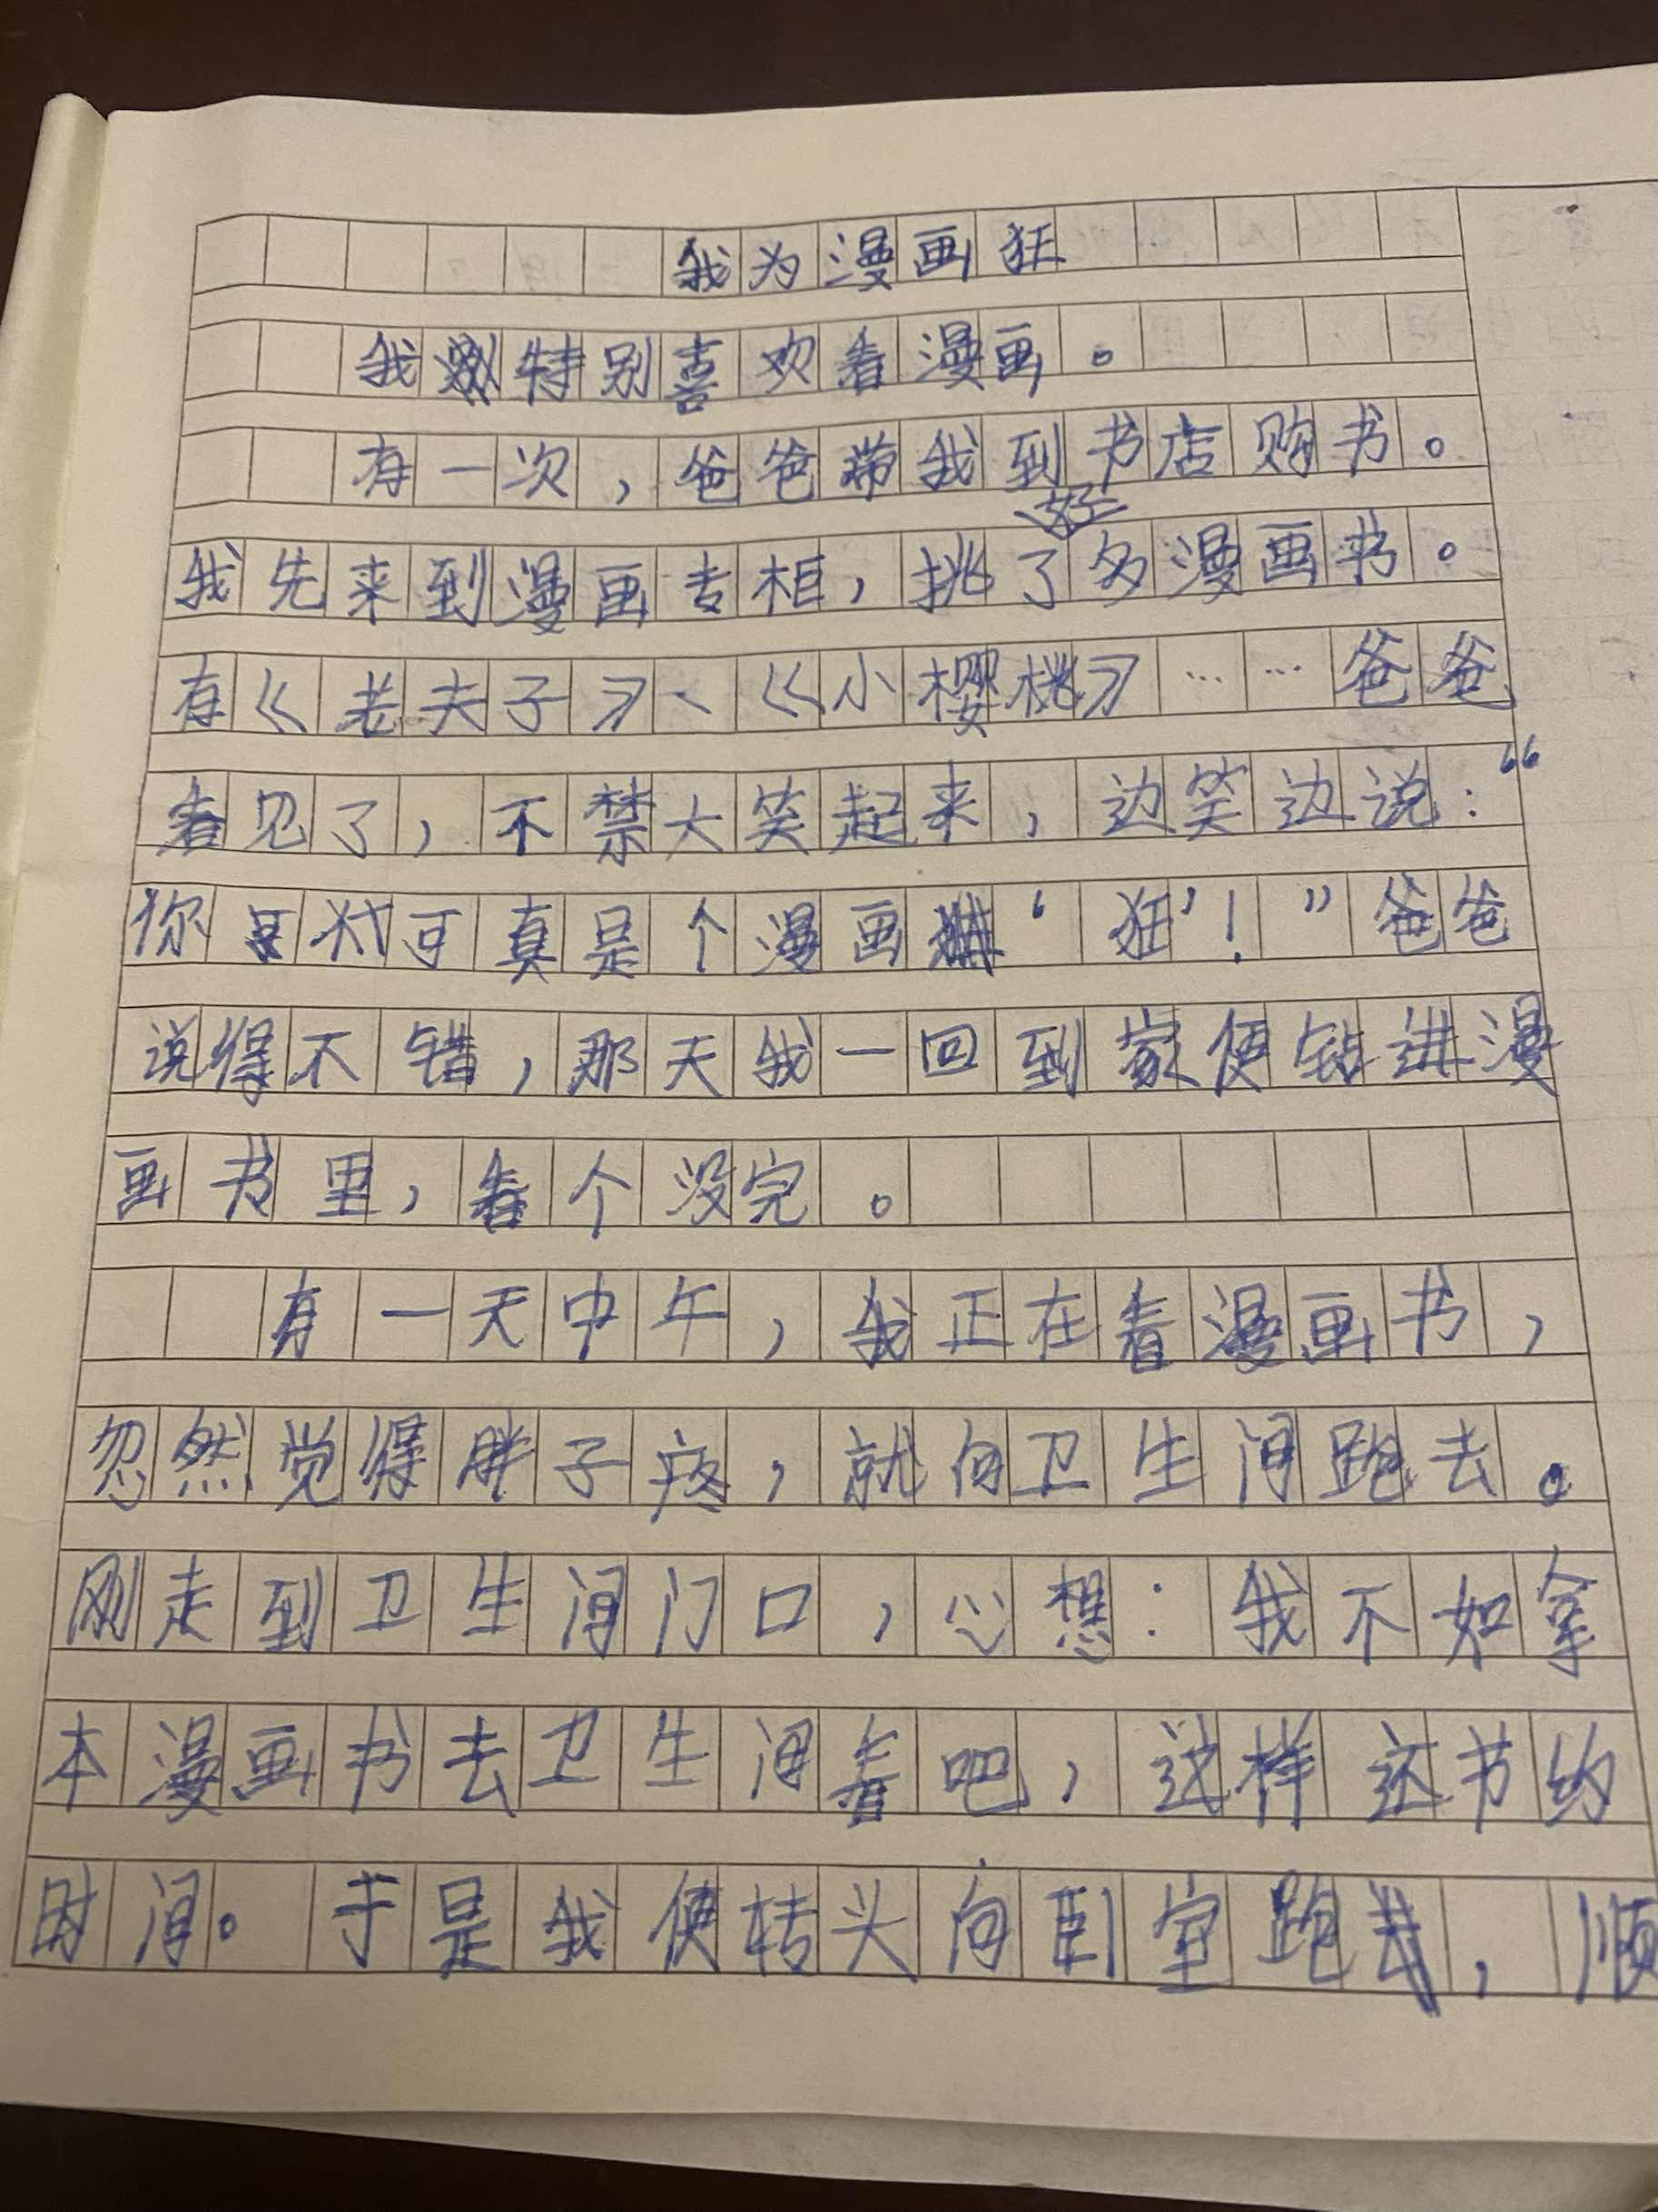 我为漫画狂
我特别喜欢看漫画。
有一次，爸爸带我到书店购书。
我先来到漫画专柜，挑了好多漫画书。
有《老夫子》、《小樱桃》……爸爸
看见了，不禁大笑起来，边笑边说：“
你可真是个漫画‘狂’！”爸爸
说得不错，那天我一回到家便钻进漫
画书里，看个没完。
有一天中午，我正在看漫画书，
忽然觉得肚子疼，就向卫生间跑去。
刚走到卫生间门口，心想：我不如拿
本漫画书去卫生间看吧，这样还节约
时间。于是我便转头向卧室跑去，顺